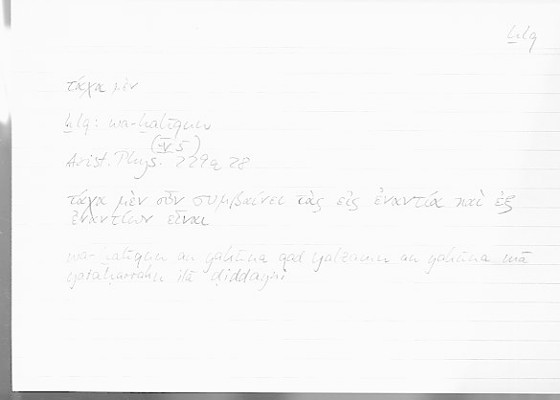 ḫlq
τάχα μὲν
ḫlq: wa-ḫalīqun
(IV 5)
Arist. Phys. 229a 28
τάχα μὲν οὖν συμβαίνει τὰς εἰς ἐναντία καὶ ἐξ
ἐναντίων εἶναι
wa-ḫalīqun an yakūna qad yalzamu an yakūna mā
yataḥarraku ilā ḍiddayni